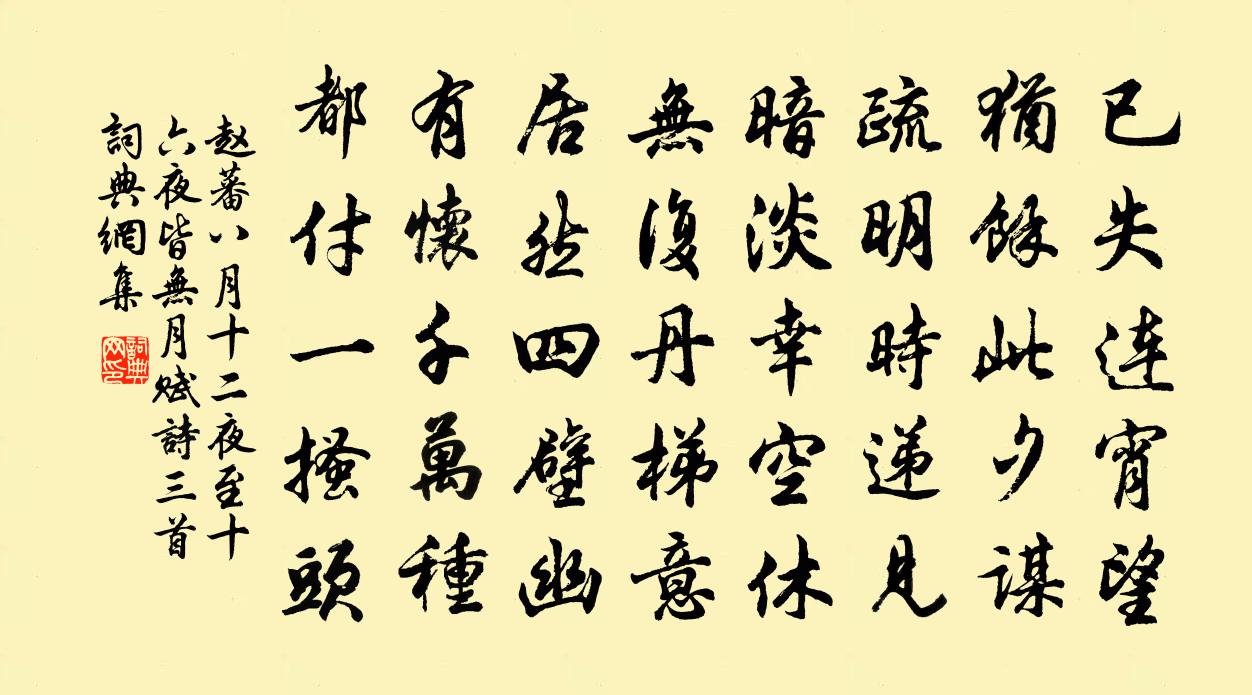 已失連宵望
猶餘此夕謀
疏明時遞見
暗淡幸空休
無復丹梯意
居然四壁幽
有懷千萬種
都付一搔頭
赵蕃八月十二夜至十
六夜皆無月赋詩三首
詞典網集
詞典网印